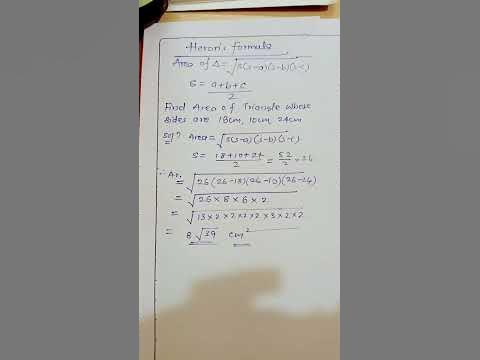 Heron's formula
Area of Δ = √s(s-a)(s-b)(s-c)
S = a+b+c
2
Find Area of Triangle whose
sides are 18cm, 10cm, 24cm
Solⁿ Area = √s(s-a)(s-b)(s-c)
S = 18+10+24 = 52 = 26
2 2
∴ Ar.
= √26(26-18)(26-10)(26-24)
= √26×8×6×2
= √13×2×2×2×2×3×2×2
= 8√39 cm²